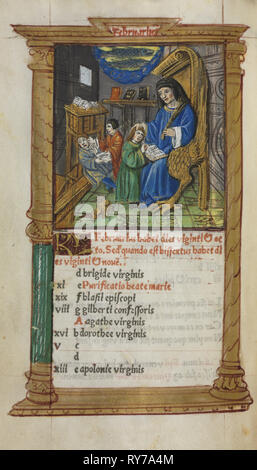 Februarius
KL Februarius habet dies viginti Octo. Sed quando est bissextus habet dies viginti Novē.
d brigide virginis
xi e Purificatio beate marie
xix f blasii episcopi
viii g gilberti confessoris
A agathe virginis
xvi b dorothee virginis
v c
d
xiii e apolonie virginis
alamy
Image ID: RY7A4M
www.alamy.com